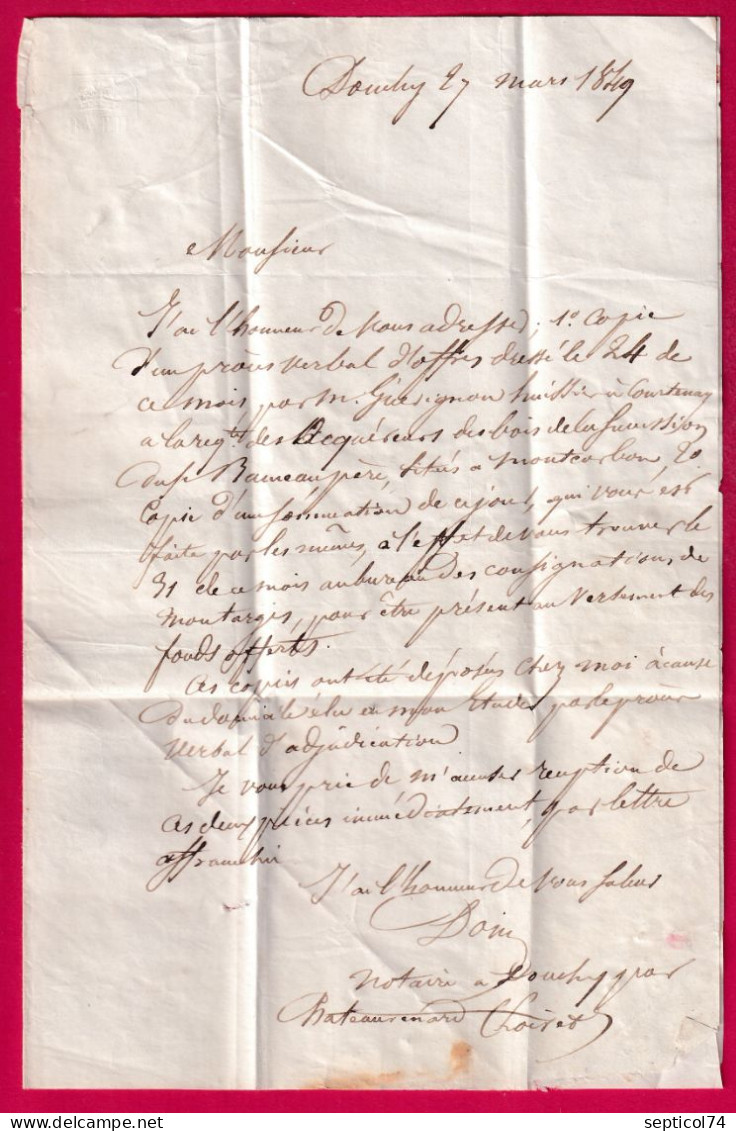 Douchy 27 mars 1849
Monsieur
J'ai l'honneur de vous adresser, 1o. Copie
d'un procès verbal d'offres dressé le 24 de
ce mois par M. Guesignon huissier à Courtenay
a la reqte. des Acquéreurs des bois de la succession
du sr. Rameau père, situés a Montcorbon, 2o
Copie d'une sommation de ce jour, qui vous est
faite par les mêmes, a l'effet de vous trouver le
31 de ce mois au bureau des consignations de
Montargis, pour être présent au versement des
fonds offerts.
Ces copies ont été déposées chez moi à cause
du domicile élu en mon Etude par le procès
verbal d'adjudication
Je vous prie de m'accuser reception de
ces deux pièces immédiatement, par lettre
affranchie
J'ai l'honneur de vous saluer
Doin
notaire a Douchy par
Chateaurenard Loiret
www.delcampe.net
septicol74